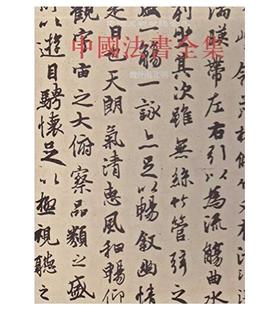 中國法書全集
魏晉南北朝
湍暎帶左右引以為流觴曲水
列坐其次雖無絲竹管弦之
盛一觴一詠亦足以暢敘幽情
是日也天朗氣清惠風和暢仰
觀宇宙之大俯察品類之盛
以遊目騁懷足以極視聽之